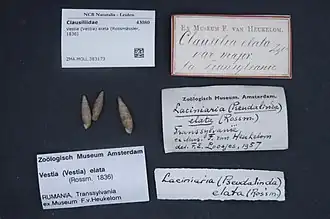 NCB Naturalis - Leiden
Clausiliidae 43060
Vestia (Vestia) elata (Rossmässler,
1836)
ZMA.MOLL.383173
Ex Museum F. van Heukelom.
Clausilia elata
var major
Transsylvanie
Zoölogisch Museum, Amsterdam.
Laciniaria (Pseudalinda)
elata (Rossm.)
Transsylvanië
ex Mus. F. van Heukelom
Zoölogisch Museum Amsterdam
Vestia (Vestia) elata
(Rossm. 1836)
RUMANIA, Transsylvania
ex Museum F.v.Heukelom
Laciniaria (Pseudalinda)
elata (Rossm.)